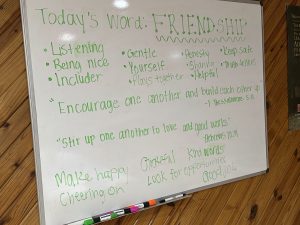 Today's Word: FRIENDSHIP
• Listening • Gentle • Honesty • Keep safe
• Being nice • Yourself • Sharing
• Includer • Plays together • Helpful
"Encourage one another and build each other up"
"Stir up one another to love and good works"
Make happy Grateful Kind words
Cheering on Look for opportunities